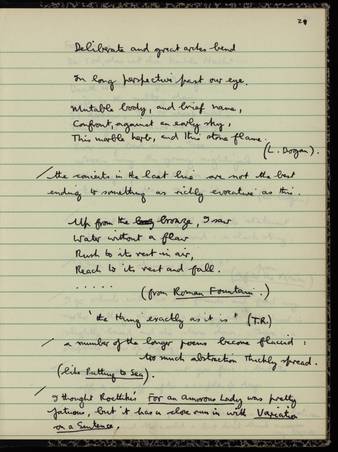 29
Deliberate and great arches bend
In long perspective past our eye.
Mutable body, and brief name,
Confront, against an early sky,
This marble herb, and this stone flame.
(L. Bogan).
/ the conceits in the last line are not the best
ending to something as richly evocative as this.
Up from the bronze, I saw
Water without a flaw
Rush to its rest in air,
Reach to its rest and fall.
.....
(from Roman Fountain.)
'the thing exactly as it is' (T.R.)
/ a number of the longer poems become flaccid :
too much abstraction thickly spread.
(like Putting to Sea).
/ I thought Roethke's For an Amorous Lady was pretty
fatuous, but it has a close run in with Variation
on a Sentence.